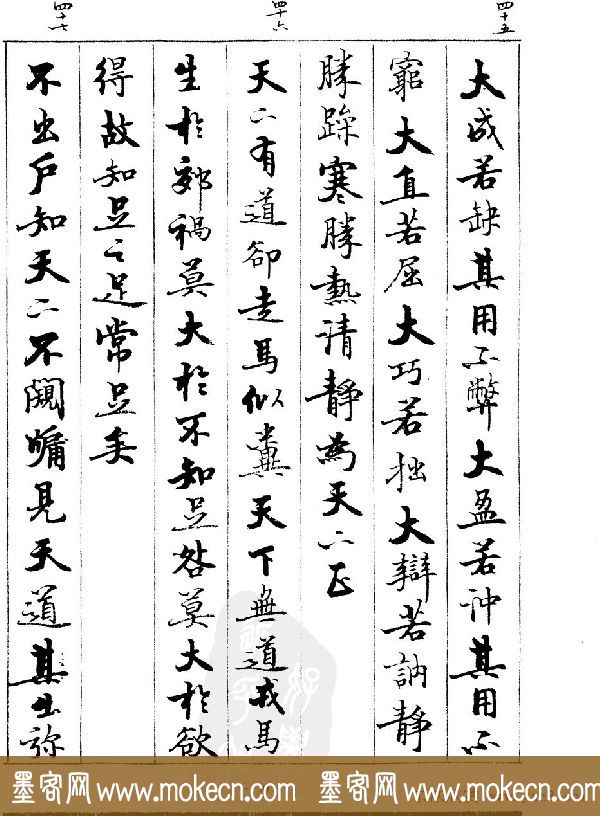 四十五
大成若缺其用不弊大盈若沖其用不
窮大直若屈大巧若拙大辯若訥靜
勝躁寒勝熱清靜為天下正
四十六
天下有道卻走馬以糞天下無道戎馬
生於郊禍莫大於不知足咎莫大於欲
得故知足之足常足矣
四十七
不出戶知天下不闚牖見天道其出彌
墨客网 www.mokecn.com 墨客网 www.mokecn.com